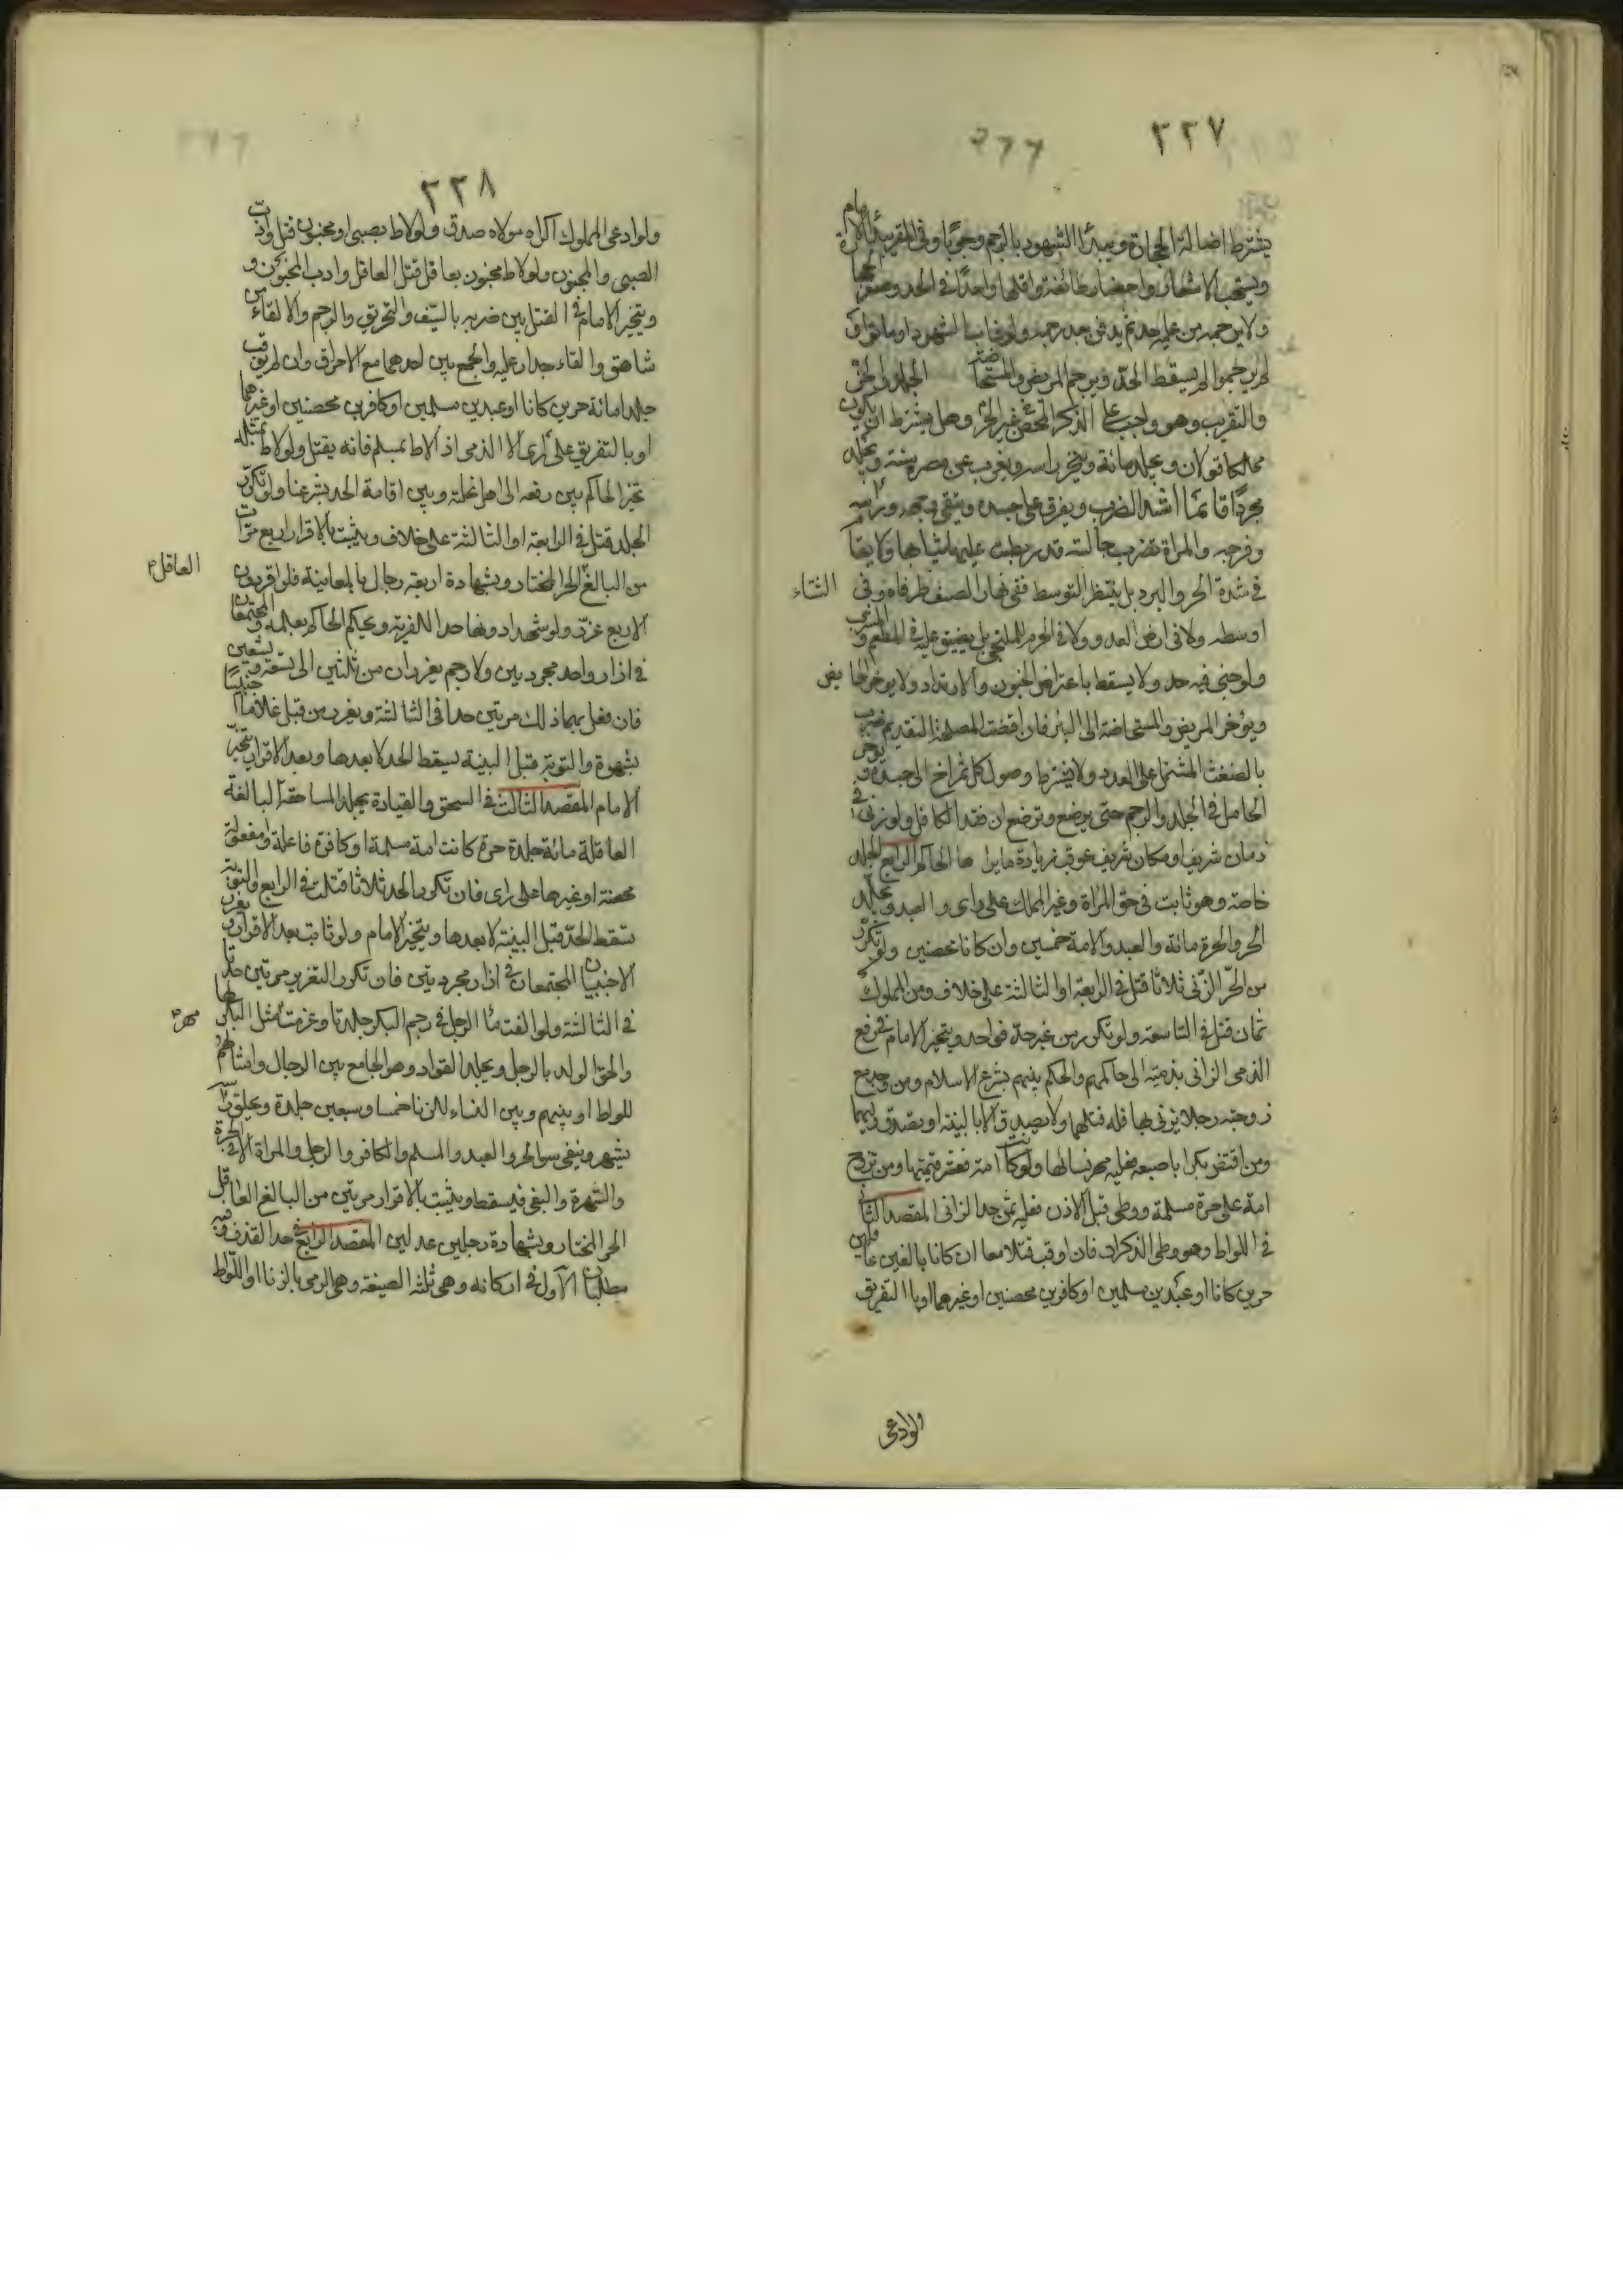 ٢٢٧
٢٦٦
يشترط اصالة الحجارة ويبدأ الشهود بالرجم وجوبا وفى المقر يبدأ الامام
ويستحب الاشعار واحضار طائفة واقلها واحد فى الحد وصغر الحجار
ولا يرجمه من عليه حد ثم يدفن بعد رجمه ولو غاب الشهود او ماتوا
لم يرجموا لم يسقط الحد ويرجم المريض والمستحاضة الجلد والجز
والتغريب وهو واجب على الذكر المحصن غير الحر وهل يشترط ان يكون
مملكا قولان ويجلد مائة ويجز راسه ويغرب عن مصره سنة ويجلد
مجردا قائما اشد الضرب ويفرق على جسده ويتقى وجهه وراسه
وفرجه والمراة تضرب جالسة قد ربطت عليها ثيابها ولا يقام
فى شدة الحر والبرد بل ينتظر التوسط ففى نهار الصيف طرفاه وفى الشتاء
اوسطه ولا فى ارض العدو ولا فى الحرم للملتجى بل يضيق عليه فى المطعم والمشرب
ولو جنى فيه حد ولا يسقط باعتراض الجنون والارتداد ولا يوخر الحايض
ويؤخر المريض والمستحاضة الى البرئ فان اقتضت المصلحة التقديم ضرب
بالضغث المشتمل على العدد ولا يشترط وصول كل شمراخ الى جسده ويوخر
الحامل فى الجلد والرجم حتى يوضع وترضع ان فقد الكافل ولو زنى فى
زمان شريف او مكان شريف عوقب زيادة ما يراها الحاكم الرابع الجلد
خاصة وهو ثابت فى حق المراة وغير المملك على راى والعبد ويجلد
الحر والحرة مائة والعبد والامة خمسين وان كانا محصنين ولو تكرر
من الحر الزنى ثلاثا قتل فى الرابعة او الثالثة على خلاف ومن المملوك
ثمان قتل فى التاسعة ولو تكرر من غير حد فواحد ويتخير الامام فى رفع
الذمى الزانى بذمية الى حاكمهم والحكم بينهم بشرع الاسلام ومن وجد مع
زوجته رجلا يزنى بها فله قتلهما ولا يصدق الا بالبينة او بصدق وليهما
ومن اقتض بكرا باصبعه فعليه مهر نسائها ولو كانت امة فعشر قيمتها ومن تزوج
امة على حرة مسلمة ووطى قبل الاذن فعليه ثمن حد الزانى المقصد الثانى
فى اللواط وهو وطى الذكران فان اوقب قتلا معا ان كانا بالغين عاقلين
حرين كانا او عبدين مسلمين او كافرين محصنين او غيرهما او بالتفريق
ولو ادعى
٢٢٨
ولو ادعى المملوك اكراه مولاه صدق ولو لاط بصبى او مجنون قتل وادب
الصبى والمجنون ولو لاط مجنون بعاقل قتل العاقل وادب المجنون و
ويتخير الامام فى القتل بين ضربه بالسيف والتحريق والرجم والالقاء من
شاهق والقاء جدار عليه والجمع بين احدهما مع الاحراق وان لم يوقب
جلد امائة حرين كانا او عبدين مسلمين او كافرين محصنين او غيرهما
او بالتفريق على راى الا الذمى اذ الاط بمسلم فانه يقتل ولو لاط بمثله
تخير الحاكم بين رفعه الى اهل نحلته وبين اقامة الحد بشرعنا ولو تكرر
الجلد قتل فى الرابعة او الثالثة على خلاف ويثبت بالاقرار اربع مرات
من البالغ الحر المختار وبشهادة اربعة رجال بالمعاينة فلو اقر دون العاقل
الاربع عزر ولو شهد دونها حدا للفرية ويحكم الحاكم بعلمه والمجتمعان
فى ازار واحد مجردين ولا رحم يعزران من ثلثين الى تسعة وتسعين
فان فعل بهما ذلك مرتين حدا فى الثالثة ويعزر من قبل غلاما اجنبيا
بشهوة والتوبة قبل البينة يسقط الحد لا بعدها وبعد الاقرار يتخير
الامام المقصد الثالث فى السحق والقيادة يجلد المساحقة البالغة
العاقلة مائة جلدة حرة كانت امة مسلمة او كافرة فاعلة ومفعولة
محصنة او غيرها على راى فان تكرر الحد ثلاثا قتلت فى الرابع والتوبة
تسقط الحد قبل البينة لا بعدها ويتخير الامام ولو تابت بعد الاقرار ويعزر
الاجنبيتان المجتمعتان فى ازار مجردتين فان تكرر التعزير مرتين حدتا
فى الثالثة ولو القت ماء الرجل فى رحم البكر جلدتا وغرمت مثل البكر مهر
والحق الولد بالرجل ويجلد القواد وهو الجامع بين الرجال وامثالهم
للواط او بينهم وبين النساء للزنا خمسا وسبعين جلدة ويحلق راسه
يشهر وينفى سوا الحر والعبد والمسلم والكافر والرجل والمراة الا فى الجز
والشهرة والنفى فيسقط ويثبت بالاقرار مرتين من البالغ العاقل
الحر المختار وبشهادة رجلين عدلين المقصد الرابع حد القذف وفيه
مطلبان الاول فى اركانه وهى ثلثة الصيغة وهى الرمى بالزنا او اللواط